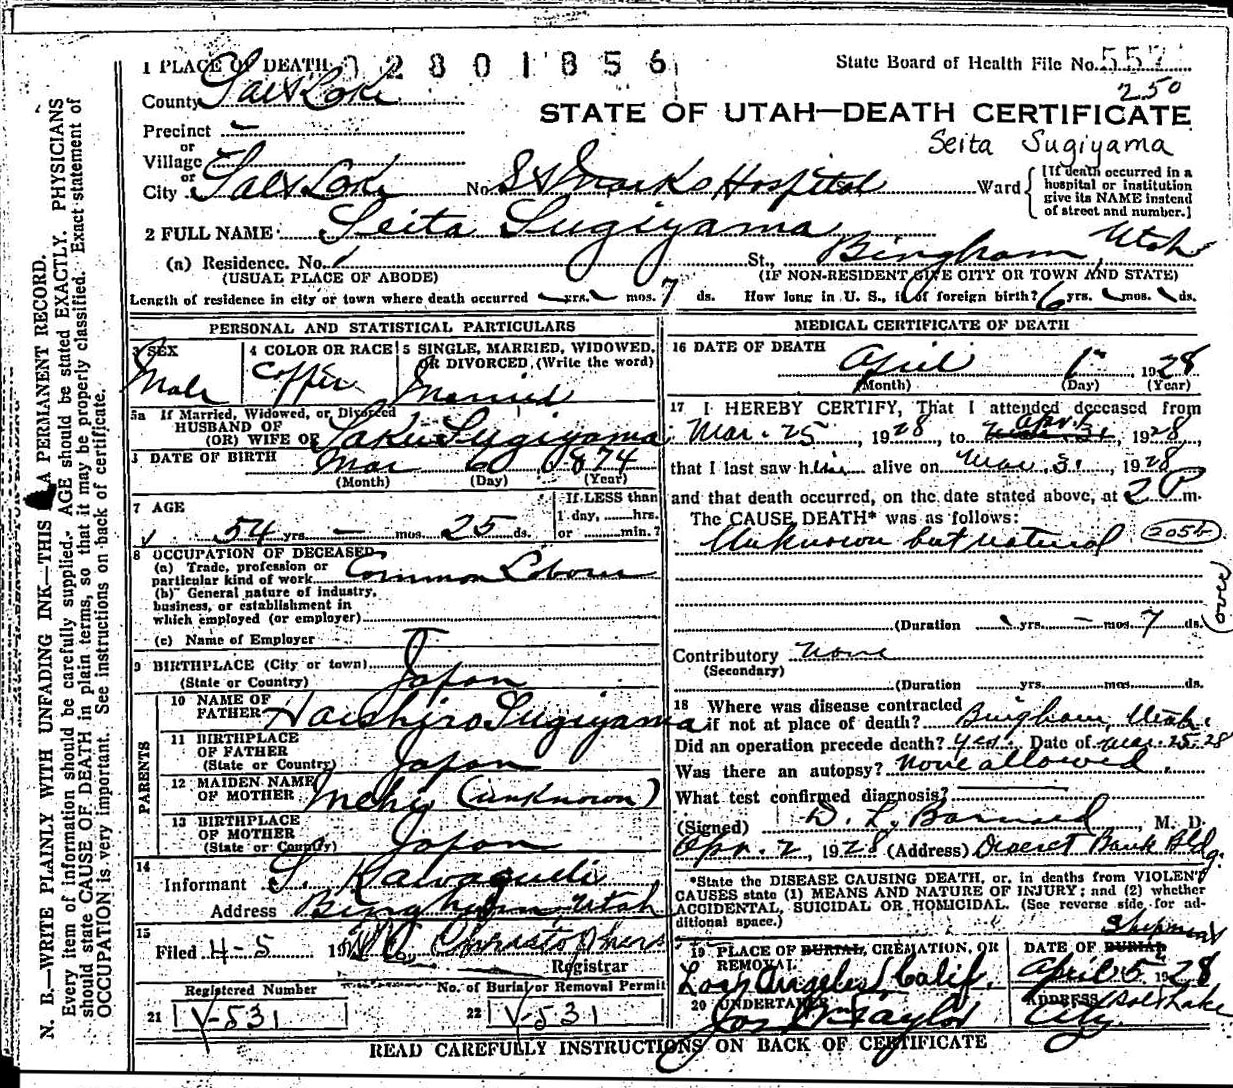 1 PLACE OF DEATH 02801856 State Board of Health File No. 557
250
County Salt Lake
STATE OF UTAH—DEATH CERTIFICATE
Precinct
or
Village
or
Seita Sugiyama
City Salt Lake No. St Marks Hospital Ward
[If death occurred in a
hospital or institution
give its NAME instead
of street and number.]
2 FULL NAME Seita Sugiyama
(a) Residence. No. St., Bingham, Utah
(USUAL PLACE OF ABODE) (IF NON-RESIDENT GIVE CITY OR TOWN AND STATE)
Length of residence in city or town where death occurred yrs. mos. 7 ds. How long in U. S., if of foreign birth? 6 yrs. mos. ds.
PERSONAL AND STATISTICAL PARTICULARS
3 SEX
Male
4 COLOR OR RACE
Copper
5 SINGLE, MARRIED, WIDOWED,
OR DIVORCED, (Write the word)
Married
5a If Married, Widowed, or Divorced
HUSBAND OF
(OR) WIFE OF Taku Sugiyama
DATE OF BIRTH Mar 6 1874
(Month) (Day) (Year)
7 AGE
54 yrs. — mos. 25 ds.
If LESS than
1 day, hrs.
or min.?
8 OCCUPATION OF DECEASED
(a) Trade, profession or
particular kind of work Common Laborer
(b) General nature of industry,
business, or establishment in
which employed (or employer)
(c) Name of Employer
9 BIRTHPLACE (City or town)
(State or Country) Japan
PARENTS
10 NAME OF
FATHER Naishiro Sugiyama
11 BIRTHPLACE
OF FATHER
(State or Country) Japan
12 MAIDEN NAME
OF MOTHER (unknown)
13 BIRTHPLACE
OF MOTHER
(State or Country) Japan
14
Informant
Address Bingham Utah
15
Filed 4-5 19
Registrar
Registered Number No. of Burial or Removal Permit
21 V-531 22 V-531
MEDICAL CERTIFICATE OF DEATH
16 DATE OF DEATH
April 1 1928
(Month) (Day) (Year)
17 I HEREBY CERTIFY, That I attended deceased from
Mar. 25, 1928, to Apr. 1, 1928,
that I last saw him alive on Mar. 31, 1928
and that death occurred, on the date stated above, at 2 P m.
The CAUSE DEATH* was as follows:
Unknown but natural 205b
(over)
(Duration yrs. — mos. 7 ds.
Contributory None
(Secondary)
(Duration yrs. mos. ds.
18 Where was disease contracted
if not at place of death? Bingham, Utah.
Did an operation precede death? Yes. Date of Mar. 25. 28
Was there an autopsy? None allowed.
What test confirmed diagnosis?
(Signed) D. L. Barnard, M. D.
Apr. 2, 1928 (Address) Deseret Bank Bldg.
*State the DISEASE CAUSING DEATH, or, in deaths from VIOLENT
CAUSES state (1) MEANS AND NATURE OF INJURY; and (2) whether
ACCIDENTAL, SUICIDAL OR HOMICIDAL. (See reverse side for ad-
ditional space.)
19 PLACE OF BURIAL, CREMATION, OR
REMOVAL
Los Angeles Calif.
Shipment
DATE OF BURIAL
April 5 1928
20 UNDERTAKER
Jos Wm Taylor
ADDRESS Salt Lake
City.
READ CAREFULLY INSTRUCTIONS ON BACK OF CERTIFICATE
N. B.—WRITE PLAINLY WITH UNFADING INK—THIS A PERMANENT RECORD.
Every item of information should be carefully supplied. AGE should be stated EXACTLY. PHYSICIANS
should state CAUSE OF DEATH in plain terms, so that it may be properly classified. Exact statement of
OCCUPATION is very important. See instructions on back of certificate.